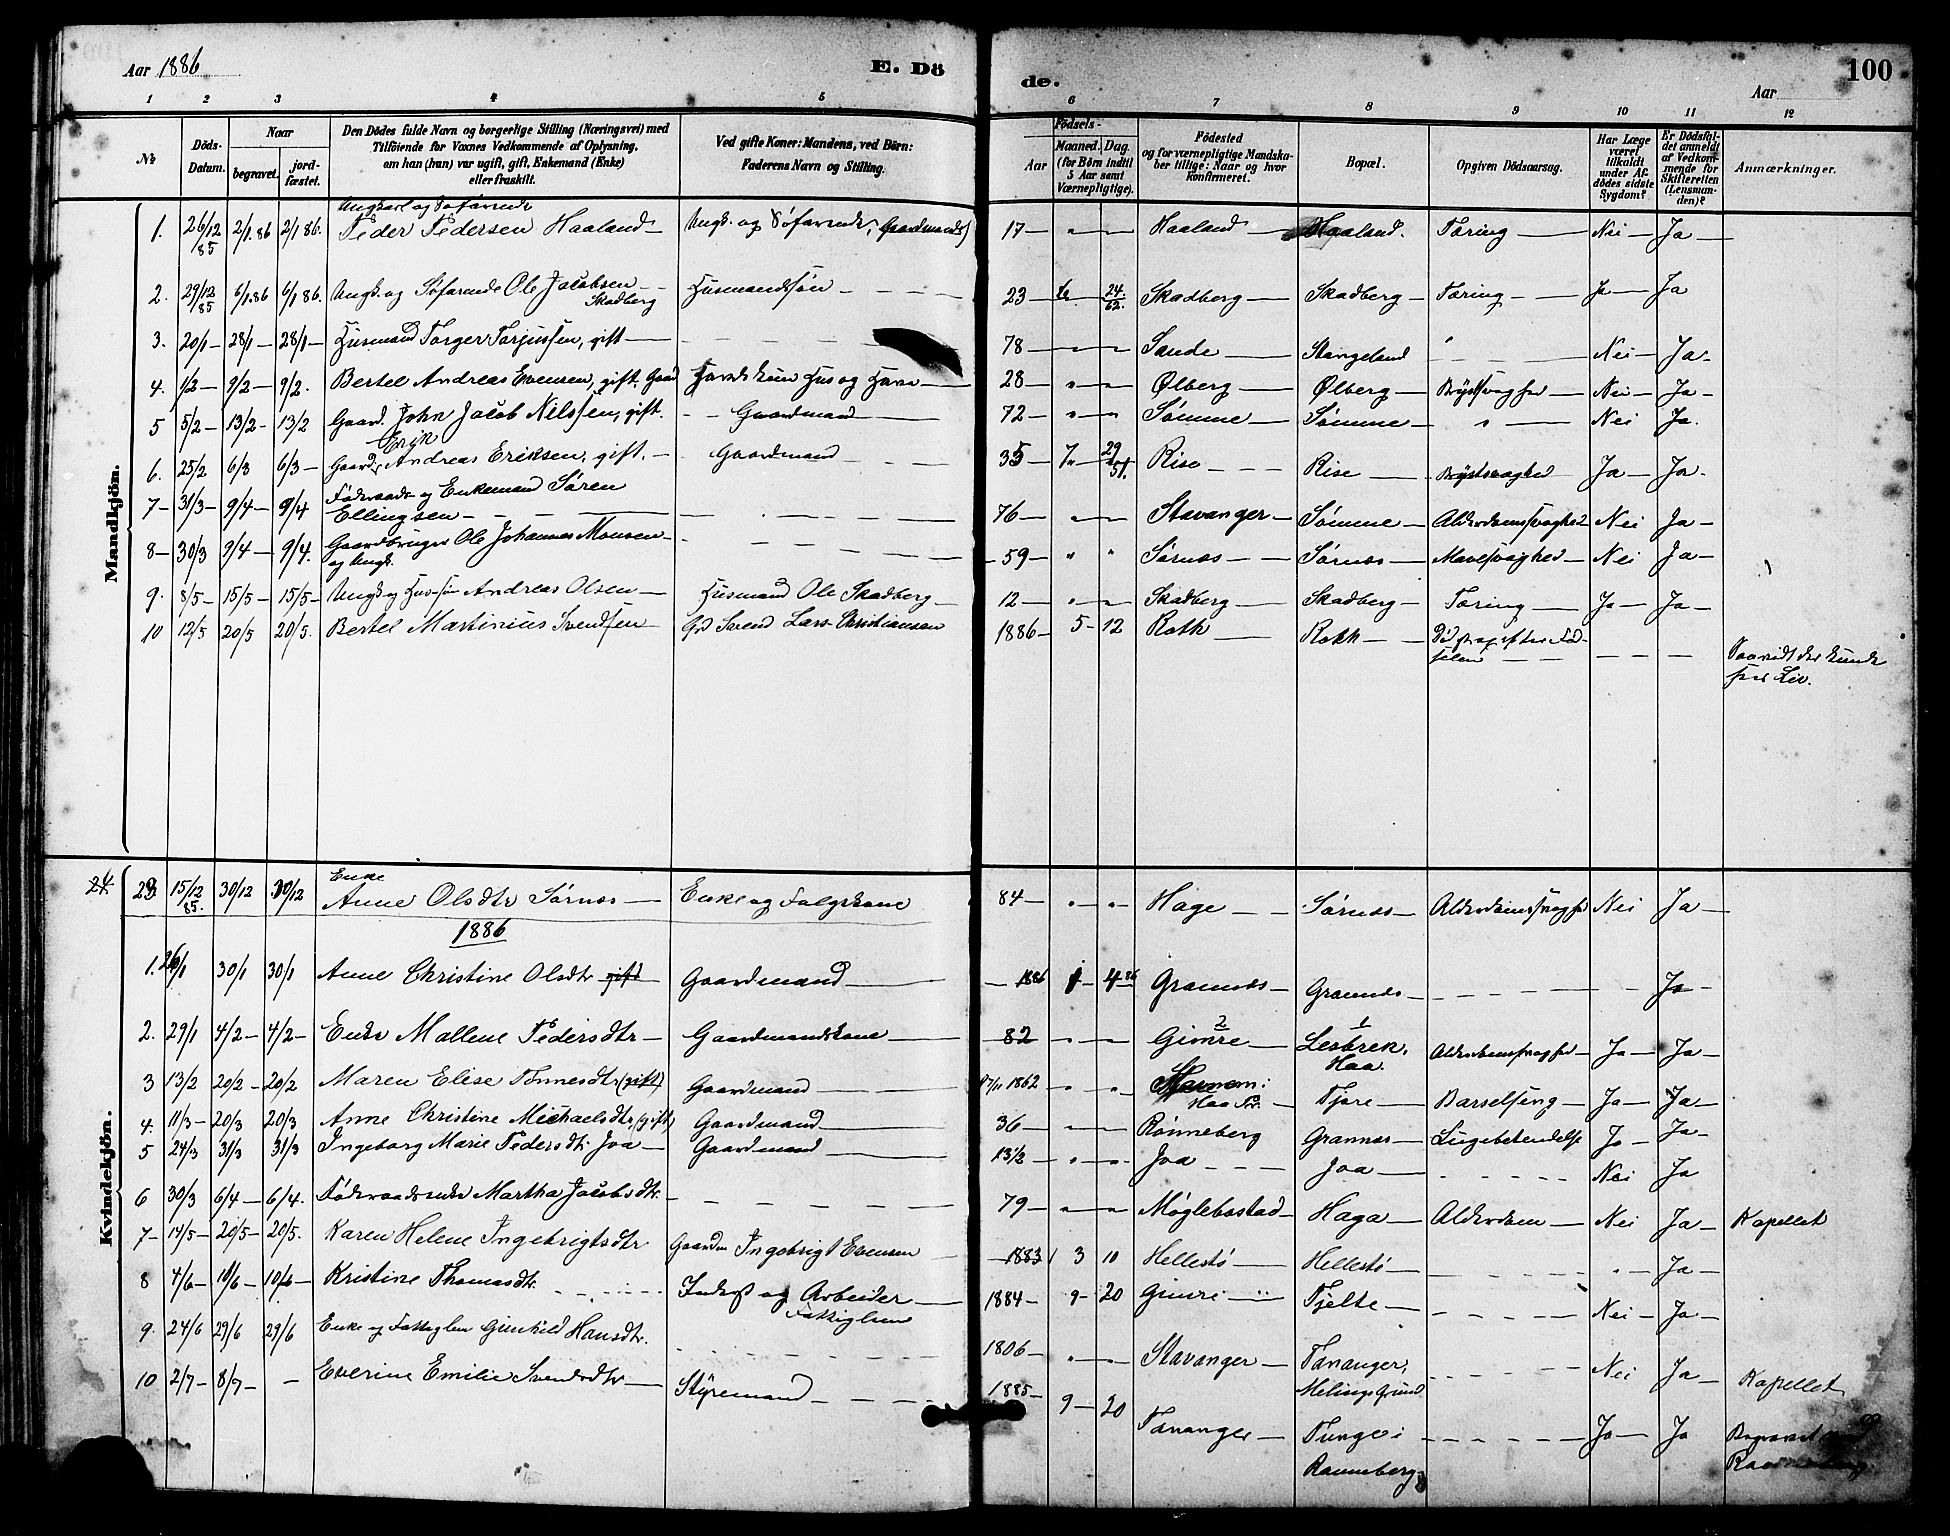 Aar 1886 E. Dö de. Aar 100
1 2 3 4 5 6 7 8 9 10 11 12
No Döds-Datum. Naar begravet. jordfæstet. Den Dödes fulde Navn og borgerlige Stilling (Næringsvei) med Tilföiende for Voxnes Vedkommende af Oplysning, om han (hun) var ugift, gift, Enkemand (Enke) eller fraskilt. Ved gifte Koner: Mandens, ved Börn: Faderens Navn og Stilling. Födsels- Aar Maaned. Dag. (for Börn indtil 5 Aar samt Værnepligtige). Födested og for værnepligtige Mandskaber tillige: Naar og hvor konfirmeret. Bopæl. Opgiven Dödsaarsag. Har Læge været tilkaldt under Afdödes sidste Sygdom? Er Dödsfaldet anmeldt af Vedkommende for Skifteretten (Lensmanden)? Anmærkninger.
Mandkjön.
Ungkarl og Søfarende
1. 26/12 85 2/1.86 2/1 86. Peder Pedersen Haaland Ungk. og Søfarende, Gaardmands 17 — " — " Haaland — Haaland. Tæring — Nei — Ja —
2. 29/12 85 6/1.86 6/1 86. Ungk. og Søfarende Ole Jacobsen Skadberg Husmandssøn 23 24/62. Skadberg — Skadberg — Tæring — Ja — Ja
3. 20/1 — 28/1 — 28/1 — Husmand Torger Torjussen, gift — 78 — Sande — Stangeland " Nei — Ja —
4. 1/2 — 9/2 — 9/2. Bertel Andreas Evensen, gift. Gaard 28 — " — " Ølberg — Ølberg — Brystsvaghed Nei — Ja —
5 5/2 — 13/2 — 13/2 Gaard. John Jacob Nilssen, gift. — Gaardmand — 72 — " — " Sømme — Sømme — " Nei Ja.
Erik
6. 25/2 6/3 6/3 — Gaard. Andreas Eriksen, gift. — Gaardmand 35 7 29/51. Rise — Rise — Brystsvaghed Ja — Ja —
7 — 31/3 — 9/4 — 9/4 Føderaads og Enkemand Søren Ellingsen — 76 — " — " Stavanger — Sømme — Alderdomssvaghed Nei Ja —
8 — 30/3 9/4 — 9/4. Gaardbruger Ole Johannes Monsen og Ungk. 59 — " " Sørnæs — Sørnæs — Mavesvaghed — Nei Ja —
9. 8/5 — 15/5 — 15/5 — Ungk. og Andreas Olsen — Husmand Ole Skadberg — 12 — " — " Skadberg — Skadberg — Tæring — Ja — Ja —
10 12/5 20/5 20/5. Bertel Martinius Svendsen — Svend Lars Christiansen 1886 — 5 — 12 Roth — Roth — efter Fødselen
Saavidt der kunde
Liv.
Kvindekjön.
Enke
24. 23 15/12 85. 30/12 30/12 Anne Olsdtr Sørnæs — Enke og 84 — " — " Hage — Sørnæs — Alderdomssvaghed Nei Ja —
1886
1. 26/1 30/1 30/1 Anne Christine Olsdtr gift Gaardmand — 1886 1 — 4 86 Grannæs — Grannæs — Ja —
2. 29/1 4/2 — 4/2 — Enke Mallene Pedersdtr — Gaardmandskone — 82 — " — " 2 Gimre — 1 Lesbrek, Haa. Alderdomssvaghed Ja — Ja —
3 13/2 20/2 — 20/2 Maren Elise Tønnesdtr (gift) Gaardmand — 17/11 1862 " — " Haa Pr. — Tjore — Barselseng — Ja — Ja —
4. 11/3 — 20/3 20/3 Anne Christine Michaelsdtr (gift) Gaardmand — 36 — " — Rønneberg Grannæs — Lugebetendelse Ja — Ja —
5 24/3 31/3 31/3 Ingeborg Marie Pedersdtr Joa — Gaardmand — 13 1/2 — " — " Joa — Joa — Nei Ja
6 30/3 6/4 — 6/4. Føderaadsenke Martha Jacobsdtr. — 79 — " — " Møglebostad — Haga — Alderdom — Nei Ja — Kapellet
7 — 14/5 — 20/5 — 20/5. Karen Helene Ingebrigtsdtr Gaardm. Ingebrigt Evensen — 1883 3 10 Hellestø — Hellestø — " Ja —
8 4/6 — 10/6 — 10/6 — Kristine Thomasdtr. Inderst og Arbeider — 1884 — 9 — 20 Gimre — Tjelte — Nei — Ja —
Fattiglem
9. 24/6 29/6 29/6 Enke og Fattiglem Gunhild Hansdtr. 1806 — " — " Stavanger — Tananger, Melings Grund Nei Ja — Kapellet
10 2/7 — 8/7 — — Everine Emilie Svendsdtr — Styremand — 1885 — 9 — 20 Tananger — Tunge i Ranneberg Ja — Ja Begravet